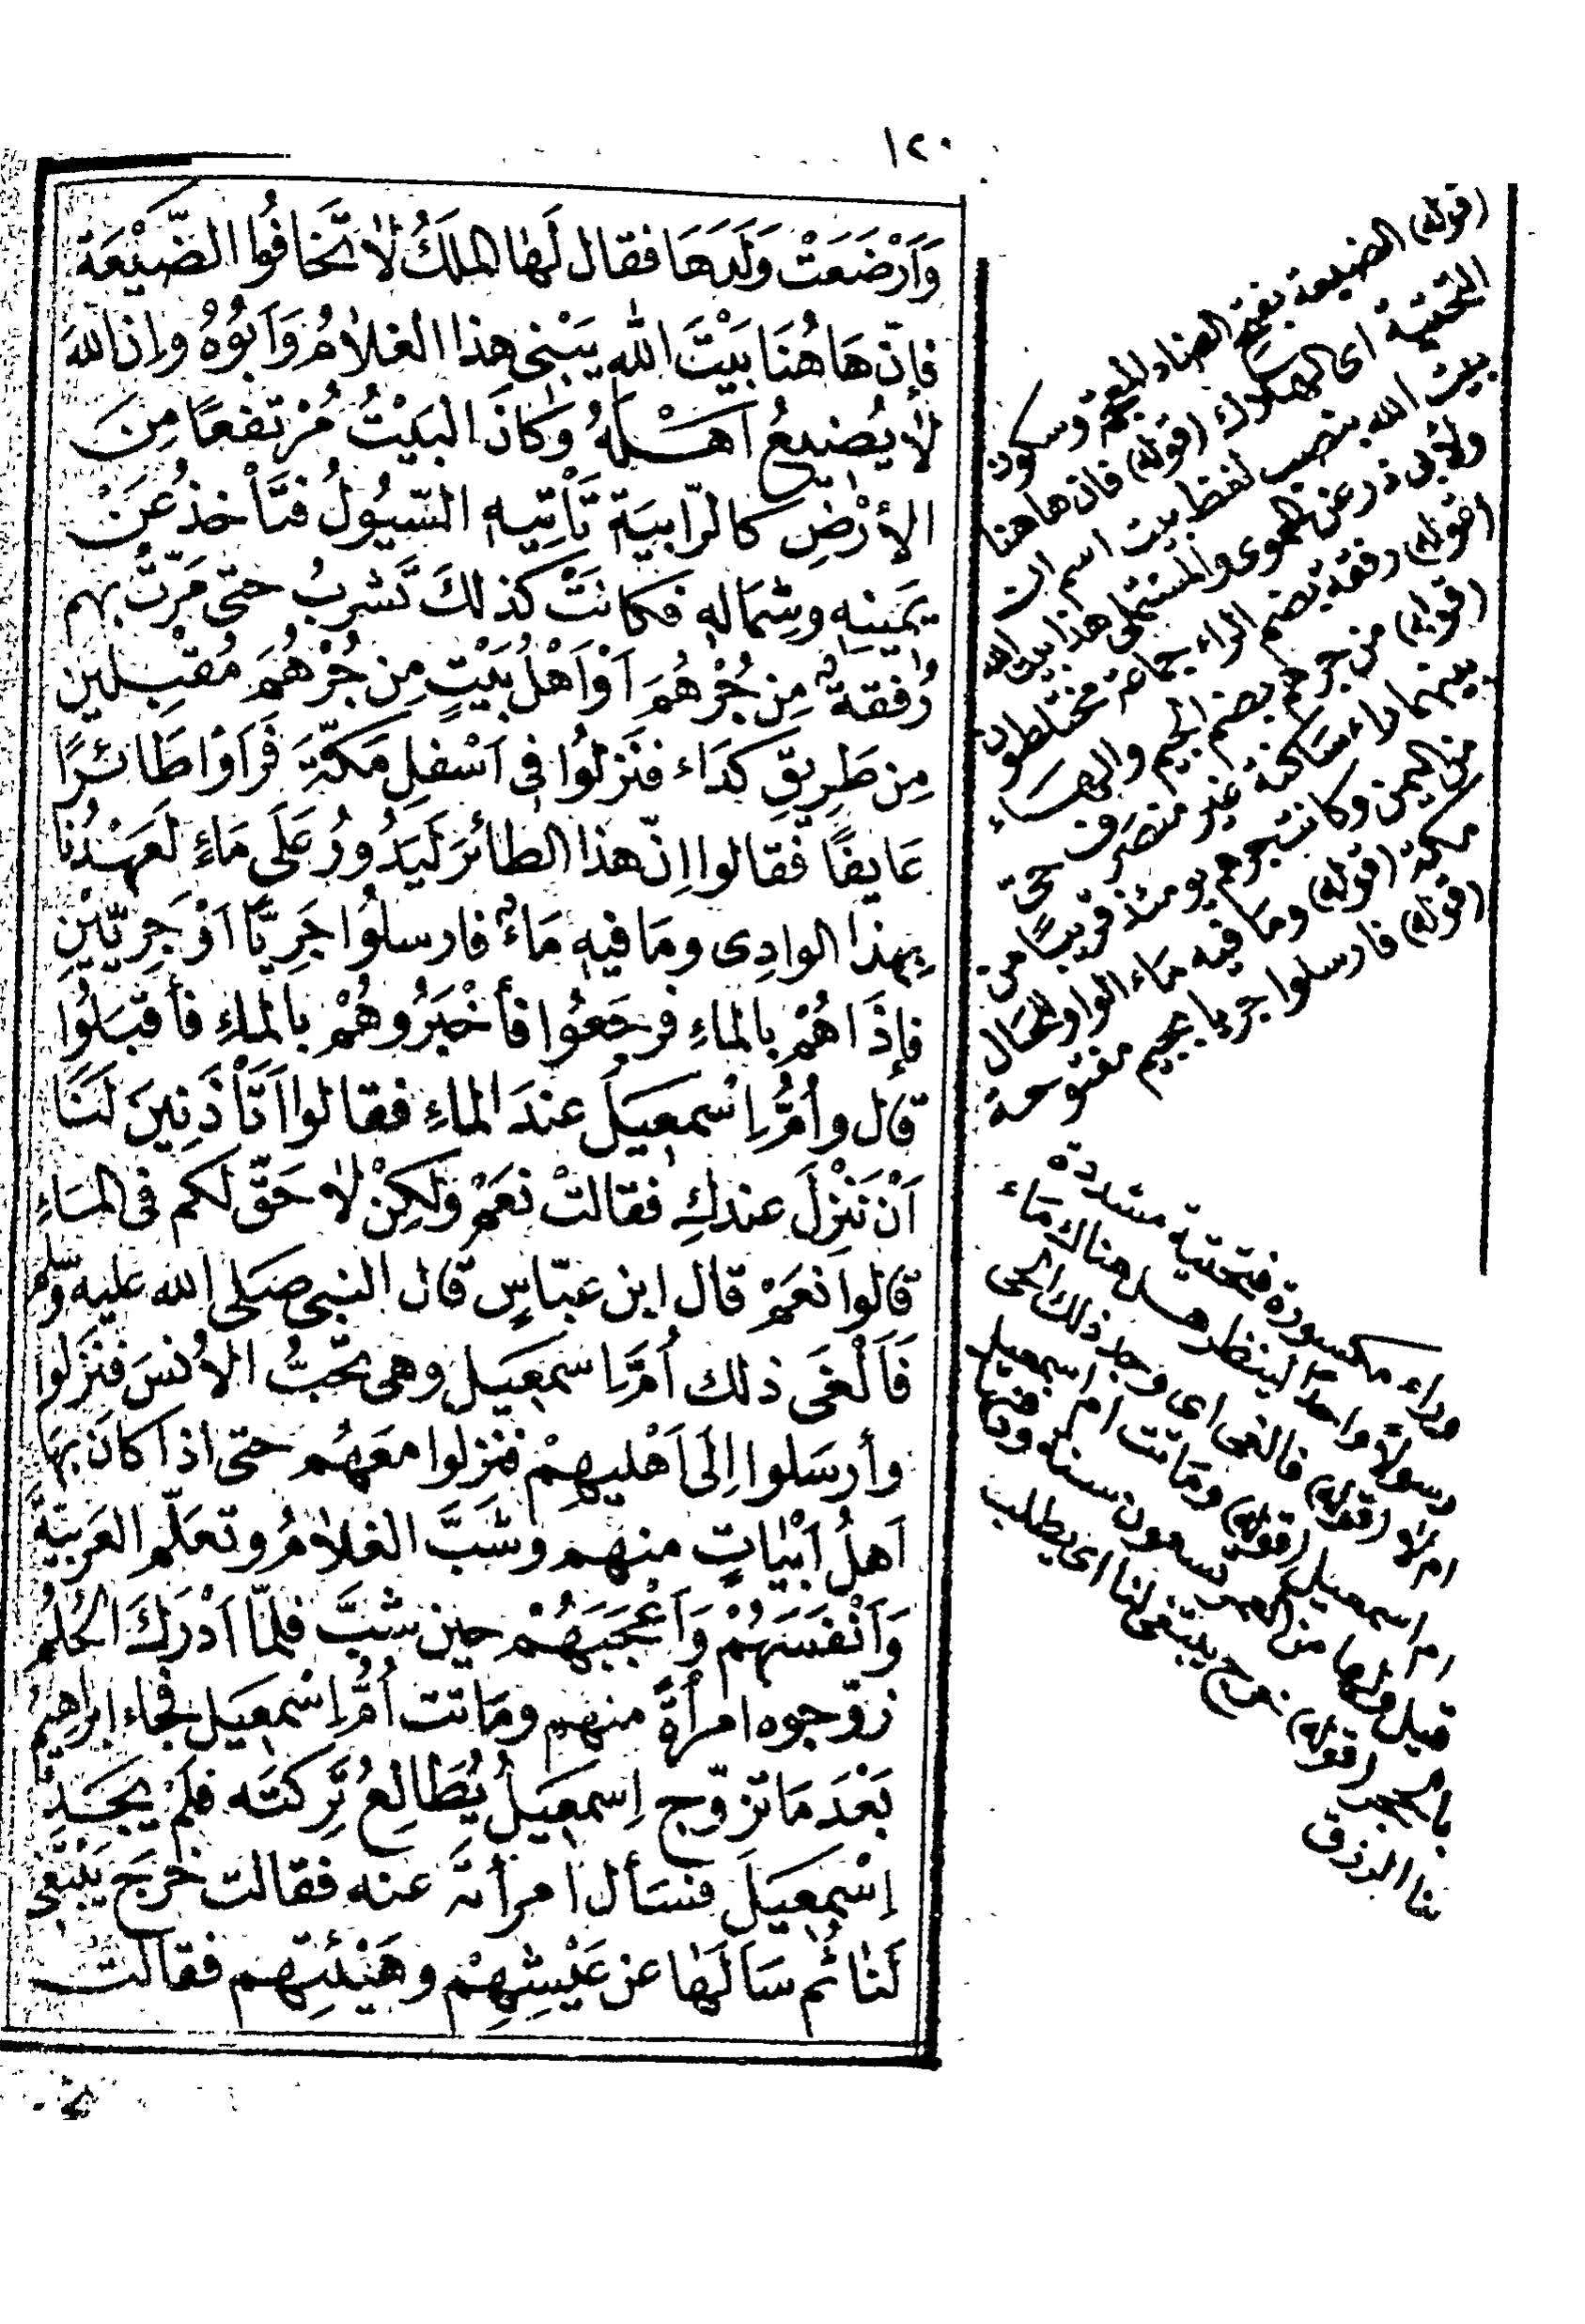 ١٢٠
وَاَرْضَعَتْ وَلَدَهَا فقال لَهَا المَلَكُ لا تَخَافُوا الضَّيْعَةَ
فإنّ هَاهُنَا بَيْتَ اللهِ يَبْنِى هذا الغلامُ وَاَبُوهُ وإن اللهَ
لا يُضيعُ اَهْلَهُ وكانَ البَيْتُ مُرْتفعًا مِنَ
الأرْضِ كالرّابيَةِ تَأتِيهِ السّيُولُ فتَأخذُ عَنْ
يَمينِهِ وشِمَالِهِ فكانَتْ كذلكَ تَشربُ حتى مَرّتْ بهم
رُفقةٌ مِن جُرْهُمَ اَوْ اَهْلُ بَيْتٍ مِن جُرْهُمَ مُقْبِلين
مِن طَرِيقِ كَدَاء فنَزلُوا فى اَسْفلِ مَكّةَ فرَاَوْا طَائرًا
عَايفًا فقالوا اِنّ هذا الطائرَ لَيَدُورُ عَلَى مَاءٍ لَعَهْدُنَا
بِهذا الوادِى ومَا فيهِ مَاءٌ فارسلُوا جَرِيًّا اَوْ جَرِيّيْنِ
فإذَا هُمْ بالماءِ فرجَعُوا فأخْبَرُوهُمْ بالماءِ فأقبَلُوا
قال وأمُّ اِسْمعيلَ عندَ الماءِ فقالوا اَتَأْذَنِينَ لَنَا
اَنْ نَنْزِلَ عندكِ فقالتْ نعَمْ ولكِنْ لا حَقّ لكم فى الماءِ
قالوا نعَمْ قال ابن عبّاسٍ قال النبى صَلى الله عليه وسلم
فَاَلْفَى ذلك أُمَّ اِسمعيل وهى تحبُّ الأُنسَ فنزلوا
وأرسَلوا اِلَى اَهْليهِمْ فنزلوا معَهُم حتى اذا كانَ بهَا
اَهلُ اَبْيَاتٍ منهم وشَبَّ الغلامُ وتعَلّم العَربيّةَ
وَاَنْفَسَهُمْ وَاَعْجَبَهُمْ حين شَبَّ فلمّا اَدْرَكَ الحُلُمَ
زوّجوه امرأةً منهم ومَاتت أُمُّ اِسْمعيل فجاء ابراهيمُ
بَعْدَ مَا تزوّج اِسمعيلُ يُطَالِعُ تَرِكتَه فلَمْ يَجِدْ
اِسْمعيلَ فسَأل امرأتَه عنه فقالت خَرجَ يَبْتغى
لَنَا ثُم سَاَلَهَا عن عَيْشِهِمْ وهَيْئتِهم فقالت
(قوله) الضيعة بفتح الضاد المعجمة وسكون
التحتية اى الهلاك (قوله) فان هاهنا
بيت الله بنصب لفظ بيت اسم ان
ولابى ذر عن الحموى والمستملى هذا بيت الله
(قوله) رفقة بضم الراء جماعة مختلطون
(قوله) من جرهم بضم الجيم والهاء
بينهما راء ساكنة غير منصرف حى
من اليمن وكانت جرهم يومئذ قريبًا من
مكة (قوله) وما فيه ماء الواو للحال
(قوله) فارسلوا جريا بجيم مفتوحة
وراء مكسورة فتحتية مشددة
رسولاً واحدًا لينظر هل هناك مَاء
ام لا (قوله) فالفى اى وجد ذلك الحى
ام اسمعيل (قوله) وماتت ام اسمعيل
قيل ولها من العمر تسعون سنة ودفنها
بالحجر (قوله) خرج يبتغى لنا اى يطلب
لنا الرزق